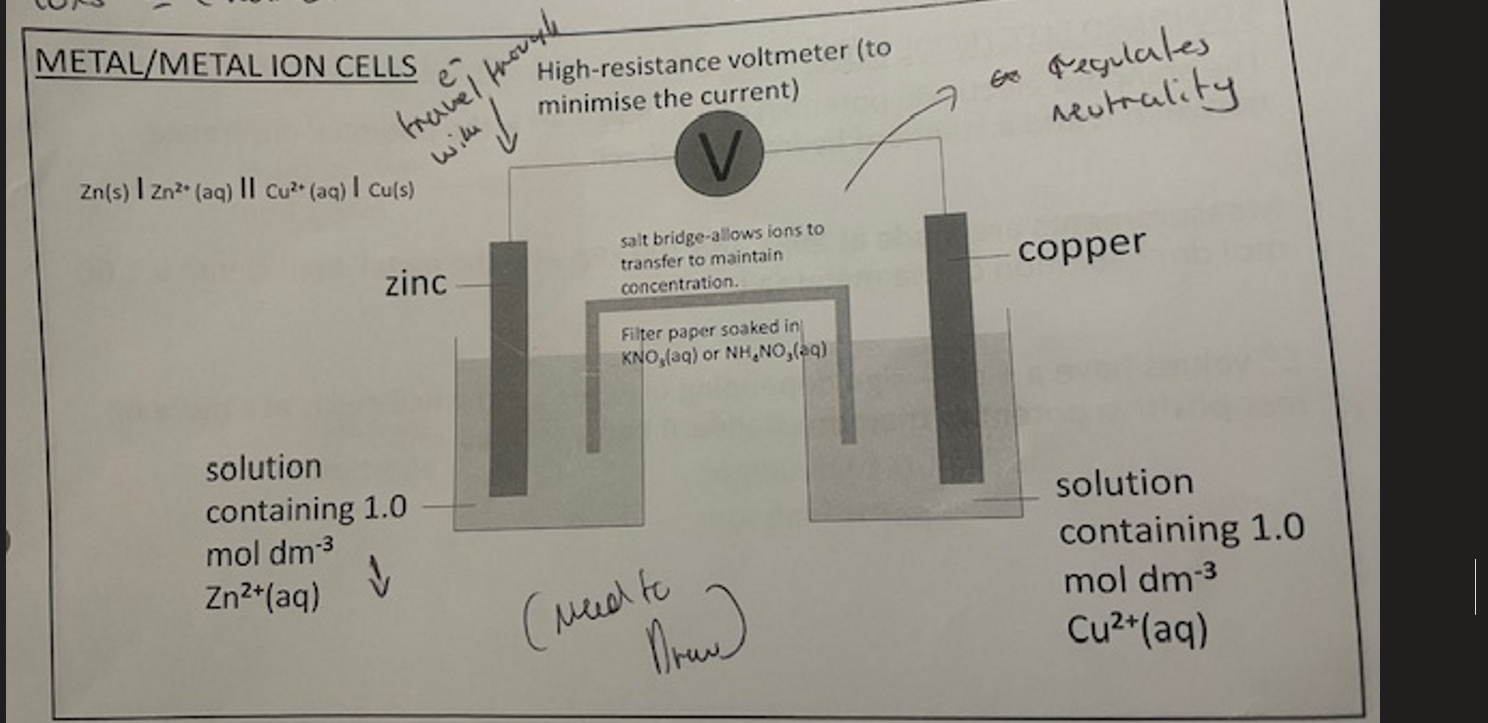 METAL/METAL ION CELLS
e⁻
travel through
wire
High-resistance voltmeter (to
minimise the current)
regulates
neutrality
V
Zn(s) | Zn²⁺ (aq) || Cu²⁺ (aq) | Cu(s)
salt bridge-allows ions to
transfer to maintain
concentration.
zinc
copper
Filter paper soaked in
KNO₃(aq) or NH₄NO₃(aq)
solution
containing 1.0
mol dm⁻³
Zn²⁺(aq)
solution
containing 1.0
mol dm⁻³
Cu²⁺(aq)
(need to
Draw)